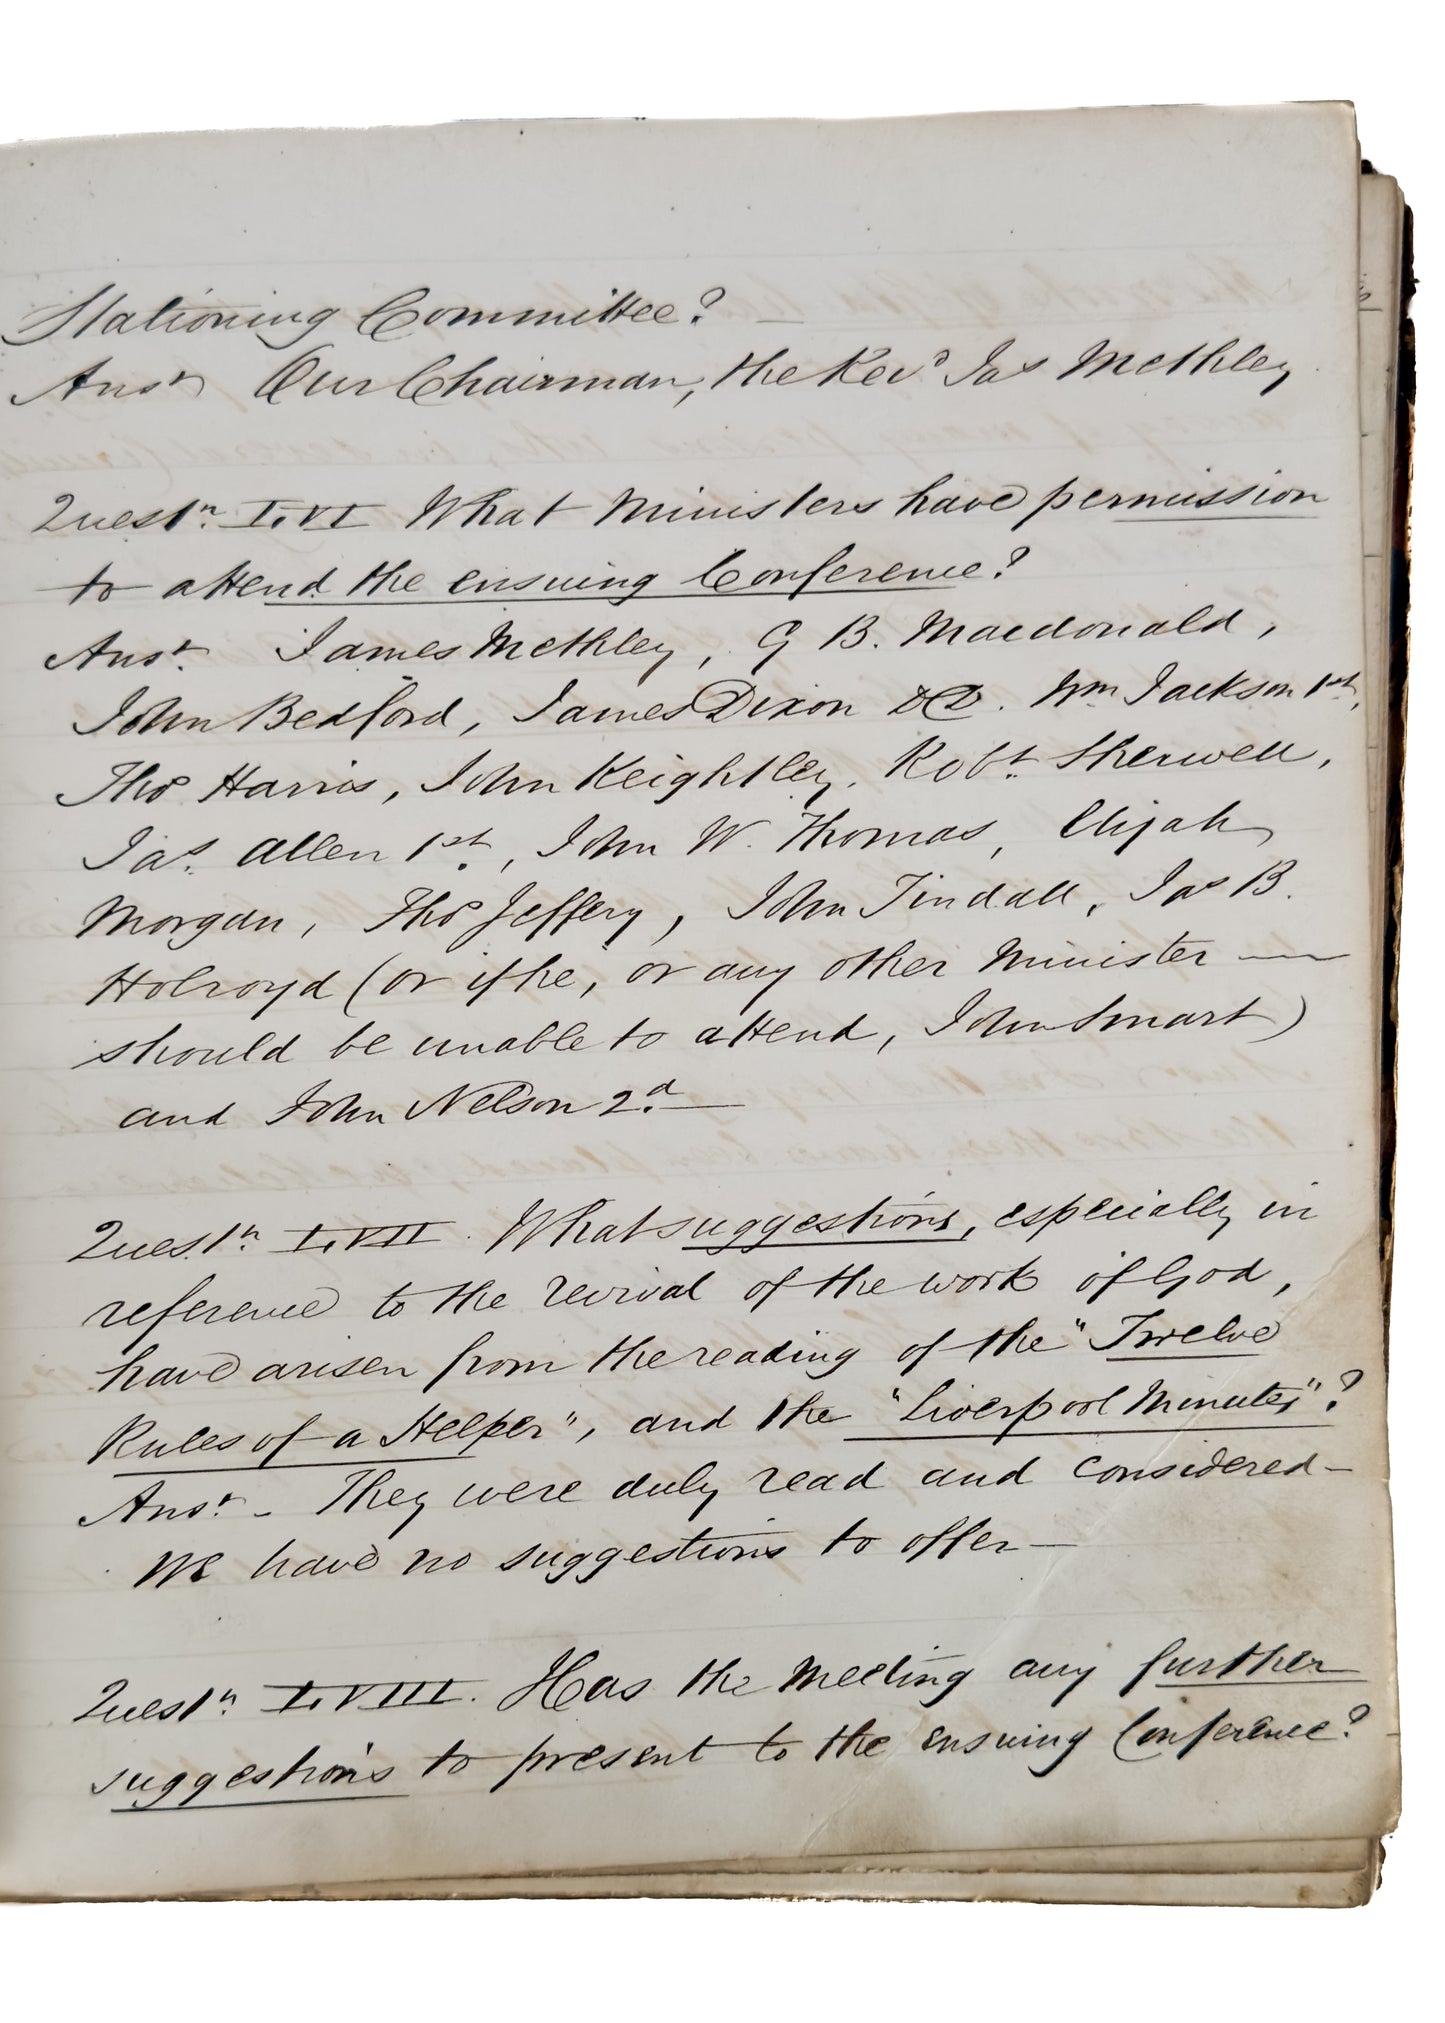 Stationing Committee? —
Ansr Our Chairman, the Revd Jas Methley
Questn. LVI What Ministers have permission
to attend the ensuing Conference?
Ansr. James Methley, G B. Macdonald,
John Bedford, James Dixon DD. Wm Jackson 1st,
Thos Harris, John Keightley, Robt. Sherwell,
Jas. Allen 1st, John W. Thomas, Elijah
Morgan, Thos Jeffery, John Tindall, Jas B.
Holroyd (or if he, or any other Minister —
should be unable to attend, John Smart)
and John Nelson 2d. —
Questn. LVII. What suggestions, especially in
reference to the revival of the work of God,
have arisen from the reading of the "Twelve
Rules of a Helper", and the "Liverpool Minutes"?
Ansr. - They were duly read and considered -
We have no suggestions to offer —
Questn LVIII. Has the Meeting any further
suggestions to present to the ensuing Conference?